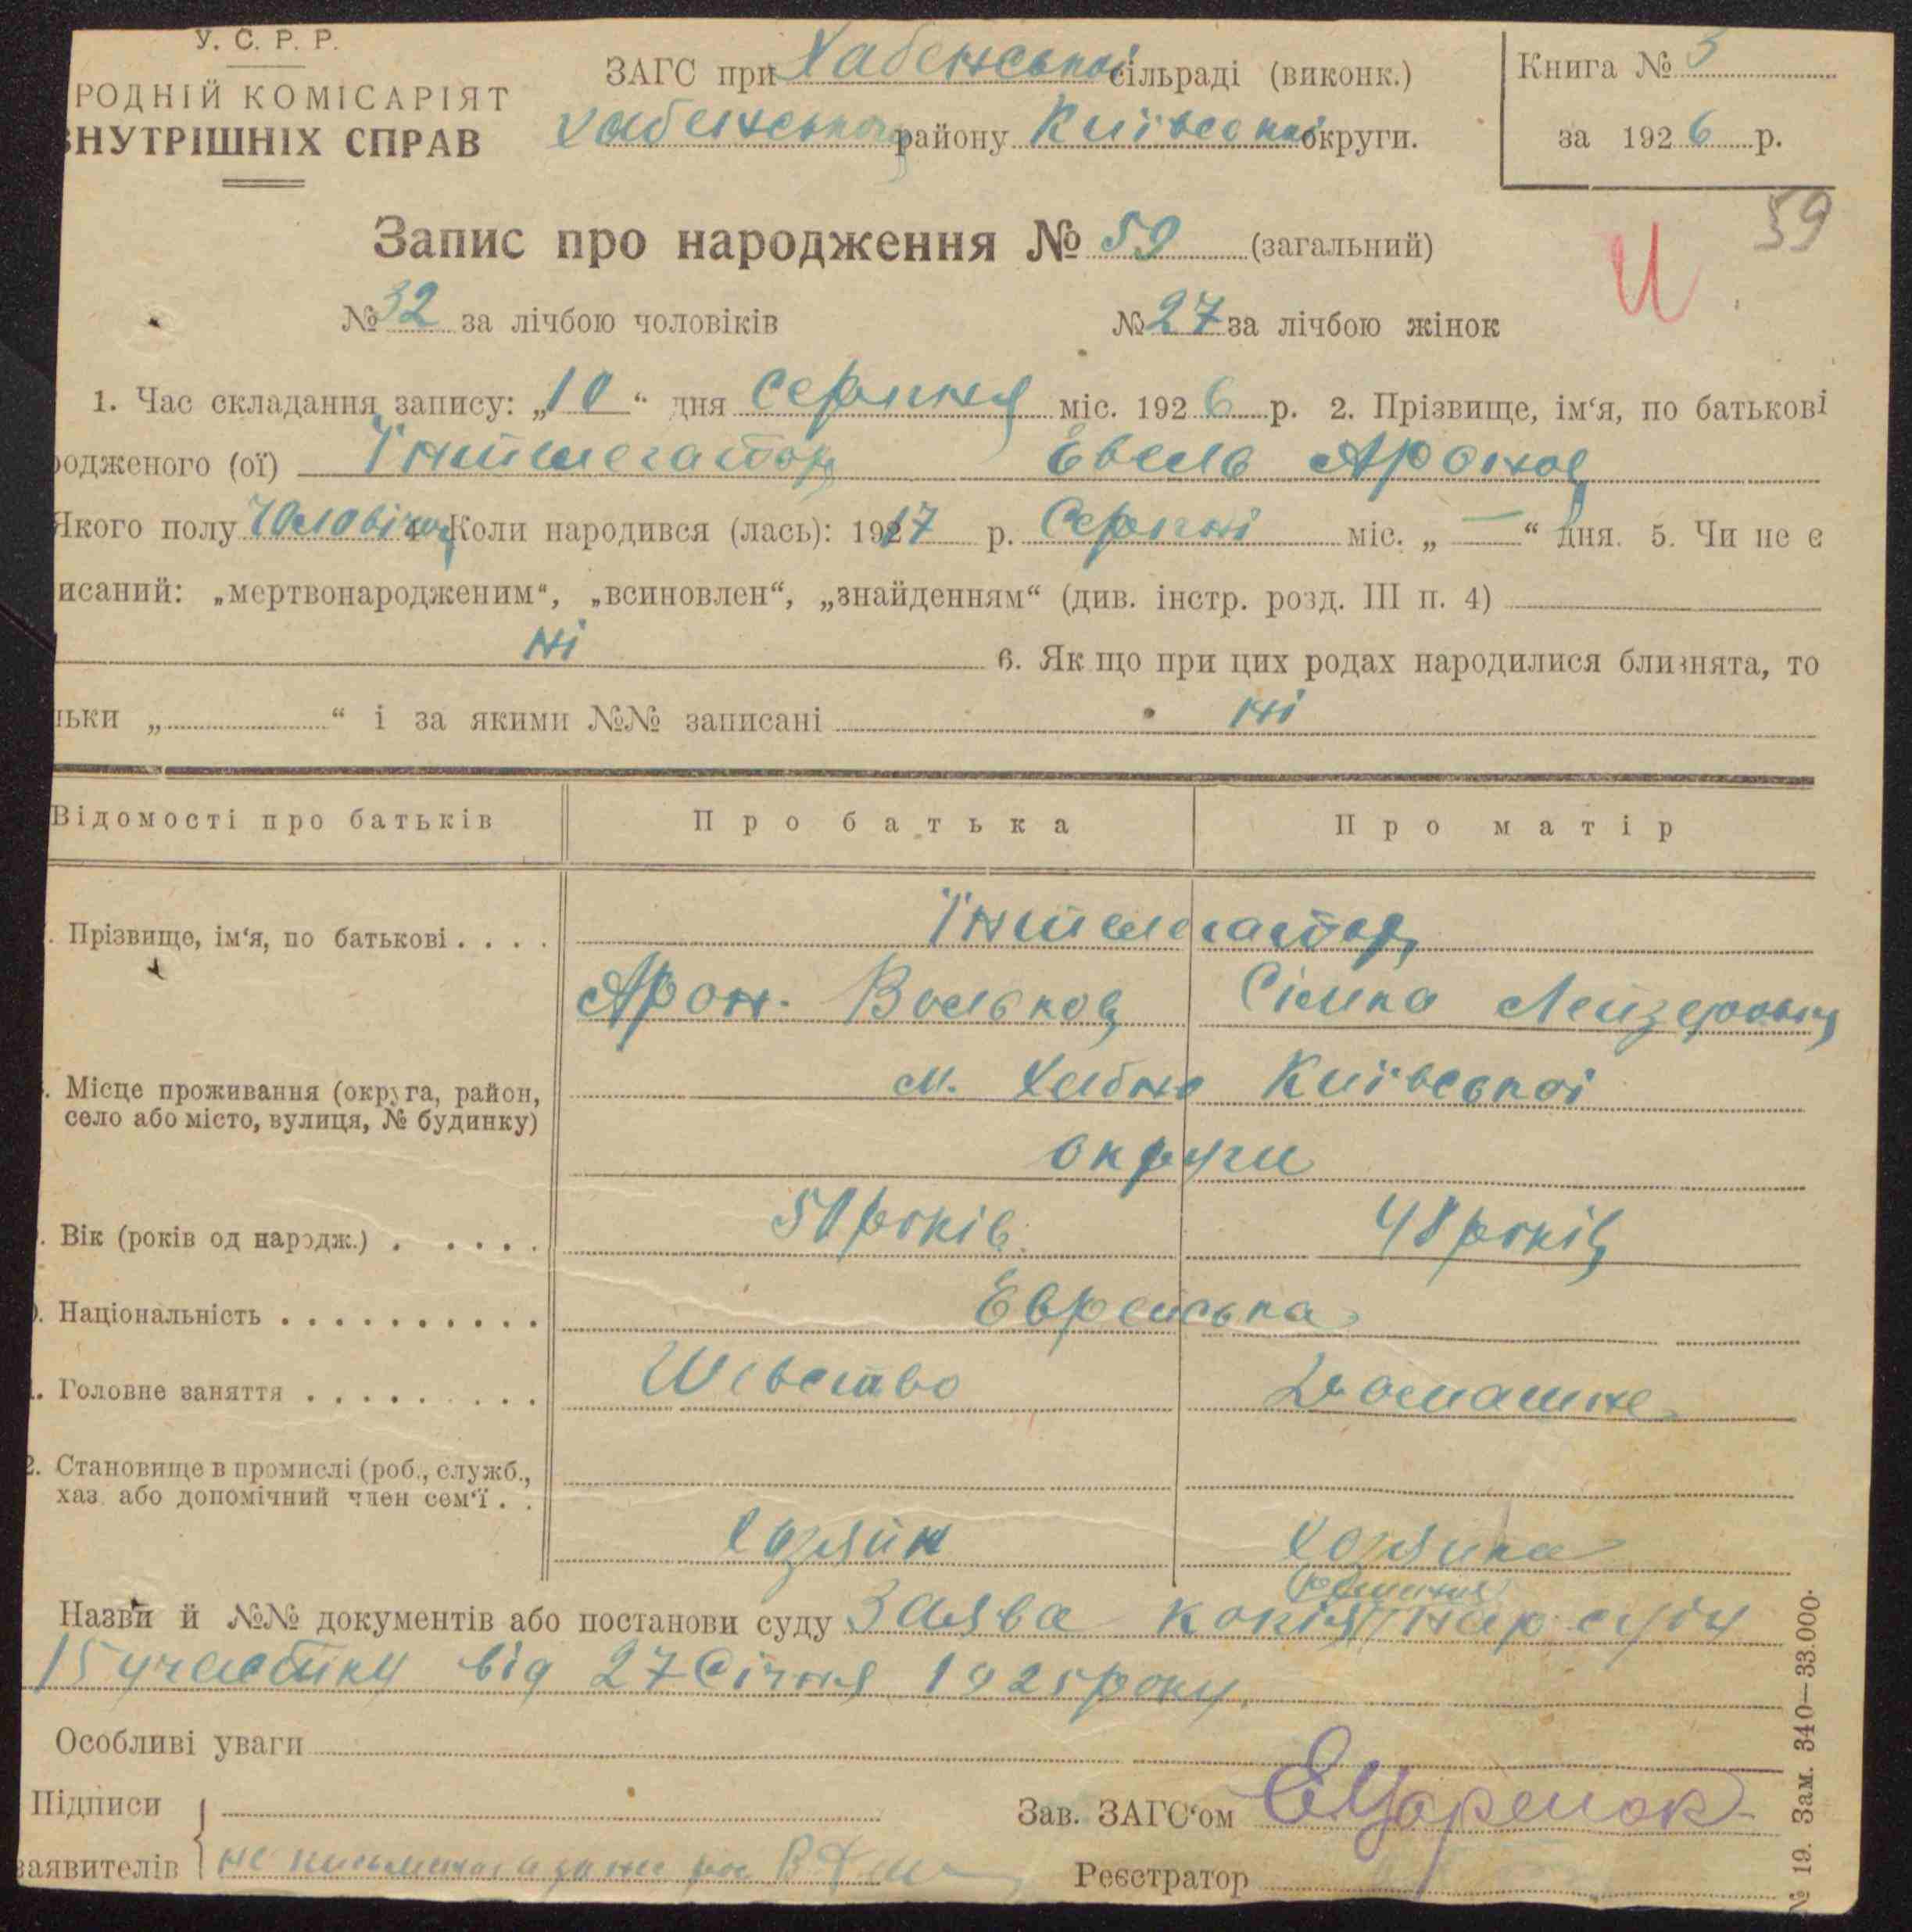 У. С. Р. Р.
РОДНІЙ КОМІСАРІЯТ
ВНУТРІШНІХ СПРАВ
ЗАГС при Хабенській сільраді (виконк.)
Хабенського району Київської округи.
Книга № 3
за 1926 р.
59
Запис про народження № 59 (загальний)
И
№ 32 за лічбою чоловіків № 27 за лічбою жінок
1. Час складання запису: „10“ дня Серпня міс. 1926 р. 2. Прізвище, ім‘я, по батькові
родженого (ої) Евель Аронов
Якого полу Чоловічого 4. Коли народився (лась): 1917 р. Серпні міс. „—“ дня. 5. Чи не є
писаний: „мертвонародженим“, „всиновлен“, „знайденням“ (див. інстр. розд. III п. 4)
ні 6. Як що при цих родах народилися близнята, то
льки „ “ і за якими №№ записані ні
Відомості про батьків Про батька Про матір
Прізвище, ім‘я, по батькові . . . .
Арон Вольков Сімка Лейзеровна
Місце проживання (округа, район, село або місто, вулиця, № будинку) м. Хабно Київської
округи
Вік (років од народж.) . . . . . 50 років 48 років
Національність . . . . . . . . . . Еврейська
Головне заняття . . . . . . . . . Шевство Домашне
2. Становище в промислі (роб., служб.,
хаз. або допомічний член сем‘ї . .
хозяїн Хозяйка
Назви й №№ документів або постанови суду Заява копія нар суду
15 участку від 27 Січня 1925 року.
Особливі уваги
Підписи
заявителів
Зав. ЗАГС‘ом
Реєстратор
№ 19. Зам. 340—33.000.